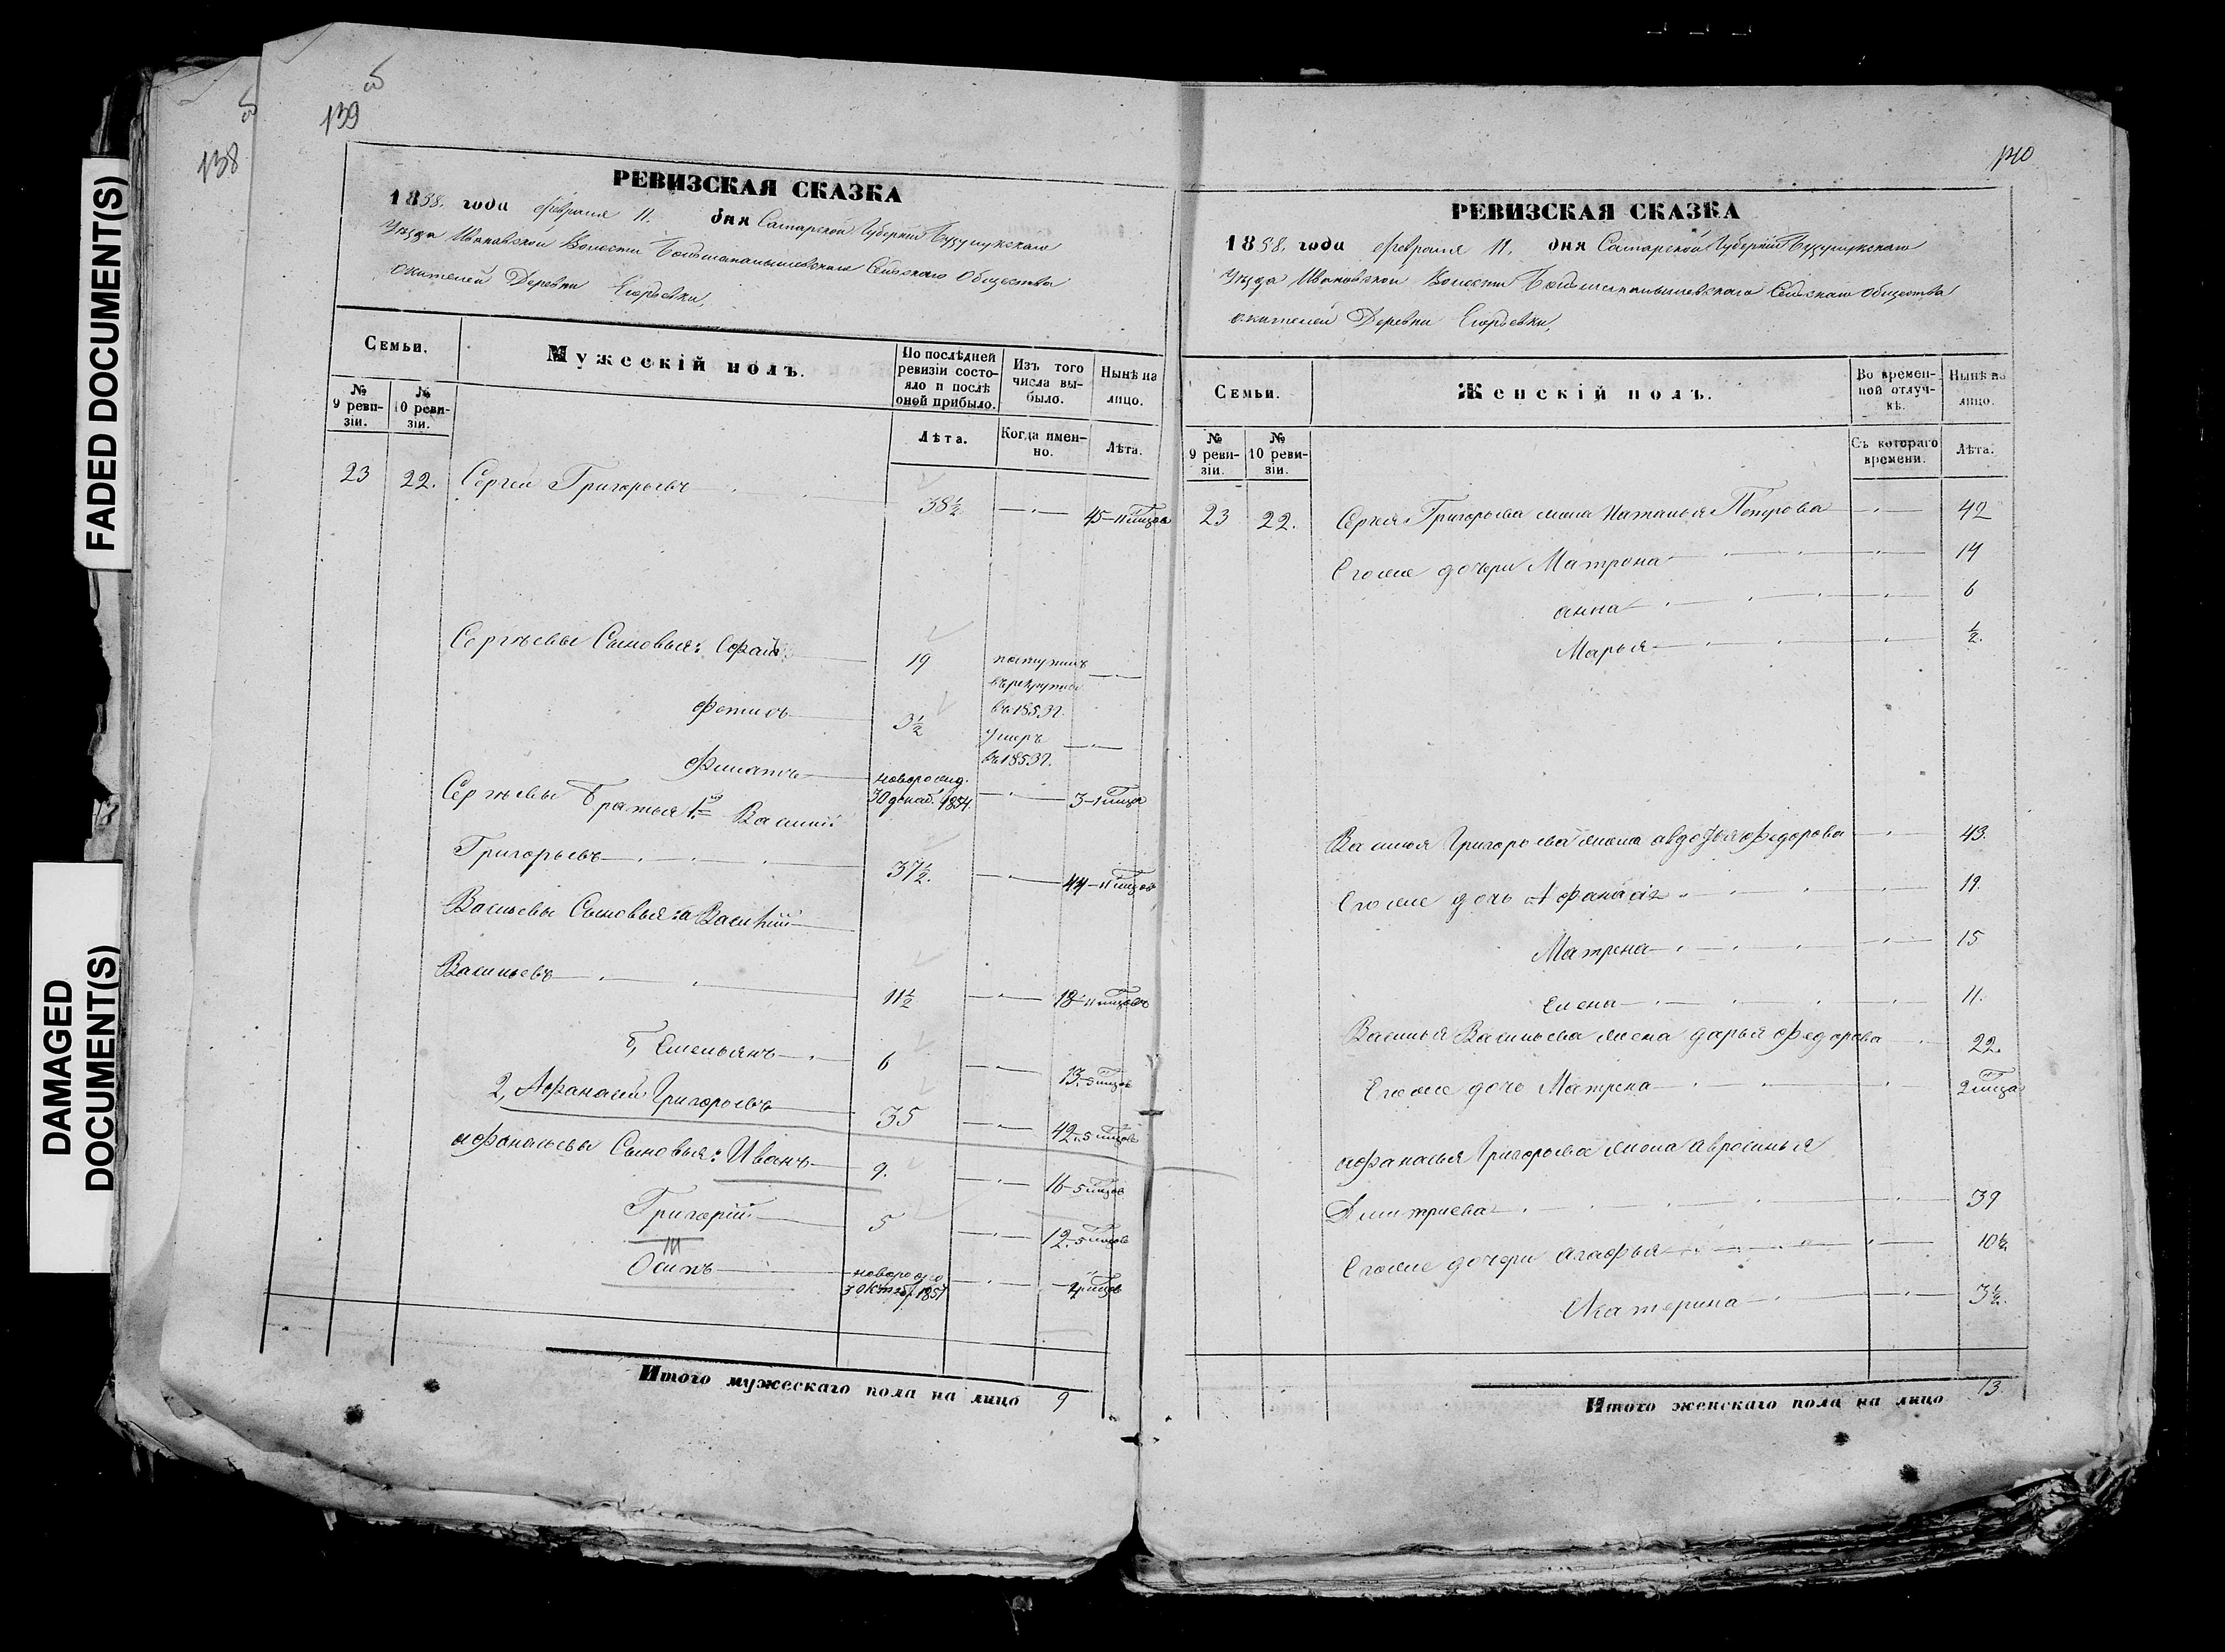 FADED DOCUMENT(S)
DAMAGED
DOCUMENT(S)
138
139
РЕВИЗСКАЯ СКАЗКА
1858. года февраля 11. дня Самарской Губернии Бузулукскаго
Уѣзда Ивановской Волости Сельскаго Общества
жителей Деревни Егорьевки,
Семьи.
Мужескій полъ.
По послѣдней ревизіи состояло и послѣ оной прибыло.
Изъ того числа выбыло.
Ныне на лицо.
№ 9 ревизіи.
№ 10 ревизіи.
Лѣта.
Когда именно.
Лѣта.
23 22. Сергей Григорьевъ 38½ 45-11
Сергѣевы Сыновья: 19 поступилъ
въ рекруты
въ 1853г.
Фотисъ 3½ умеръ
въ 1853г.
Филатъ новорожд. 3-1
30 декаб. 1854.
Сергѣевы Братья 1й Василий
Григорьевъ 37½. 44-11
Васильевы Сыновья: а Василий
Васильевъ 11½ 18-11
б, Емельянъ 6 13-5
2, Афанасий Григорьевъ 35 42-5
Афанасьевы Сыновья: Иванъ 9. 16-5
Григорій 5 12-5
Осипъ новорожд
3 Октяб. 1857
Итого мужескаго пола на лицо 9
140
РЕВИЗСКАЯ СКАЗКА
1858. года февраля 11. дня Самарской Губернии Бузулукскаго
Уѣзда Ивановской Волости Сельскаго Общества
жителей Деревни Егорьевки,
Семьи.
Женскій полъ.
Во временной отлучкѣ.
Нынѣ на лицо.
№ 9 ревизіи.
№ 10 ревизіи.
Съ котораго времени.
Лѣта.
23 22. Сергея Григорьева жена Наталья Петрова 42
Его же дочери Матрона 14
анна 6
Марья ½.
Василья Григорьева жена авдотья Федорова 43.
Его же дочь Афанасія 19.
Матрена 15
Елена 11.
Василья Васильева жена дарья Федорова 22.
Его же дочь Матрена 2
Афанасья Григорьева жена авросинья
Дмитриева 39
Его же дочери агафья 10½.
Екатерина 3½.
Итого женскаго пола на лицо 13.